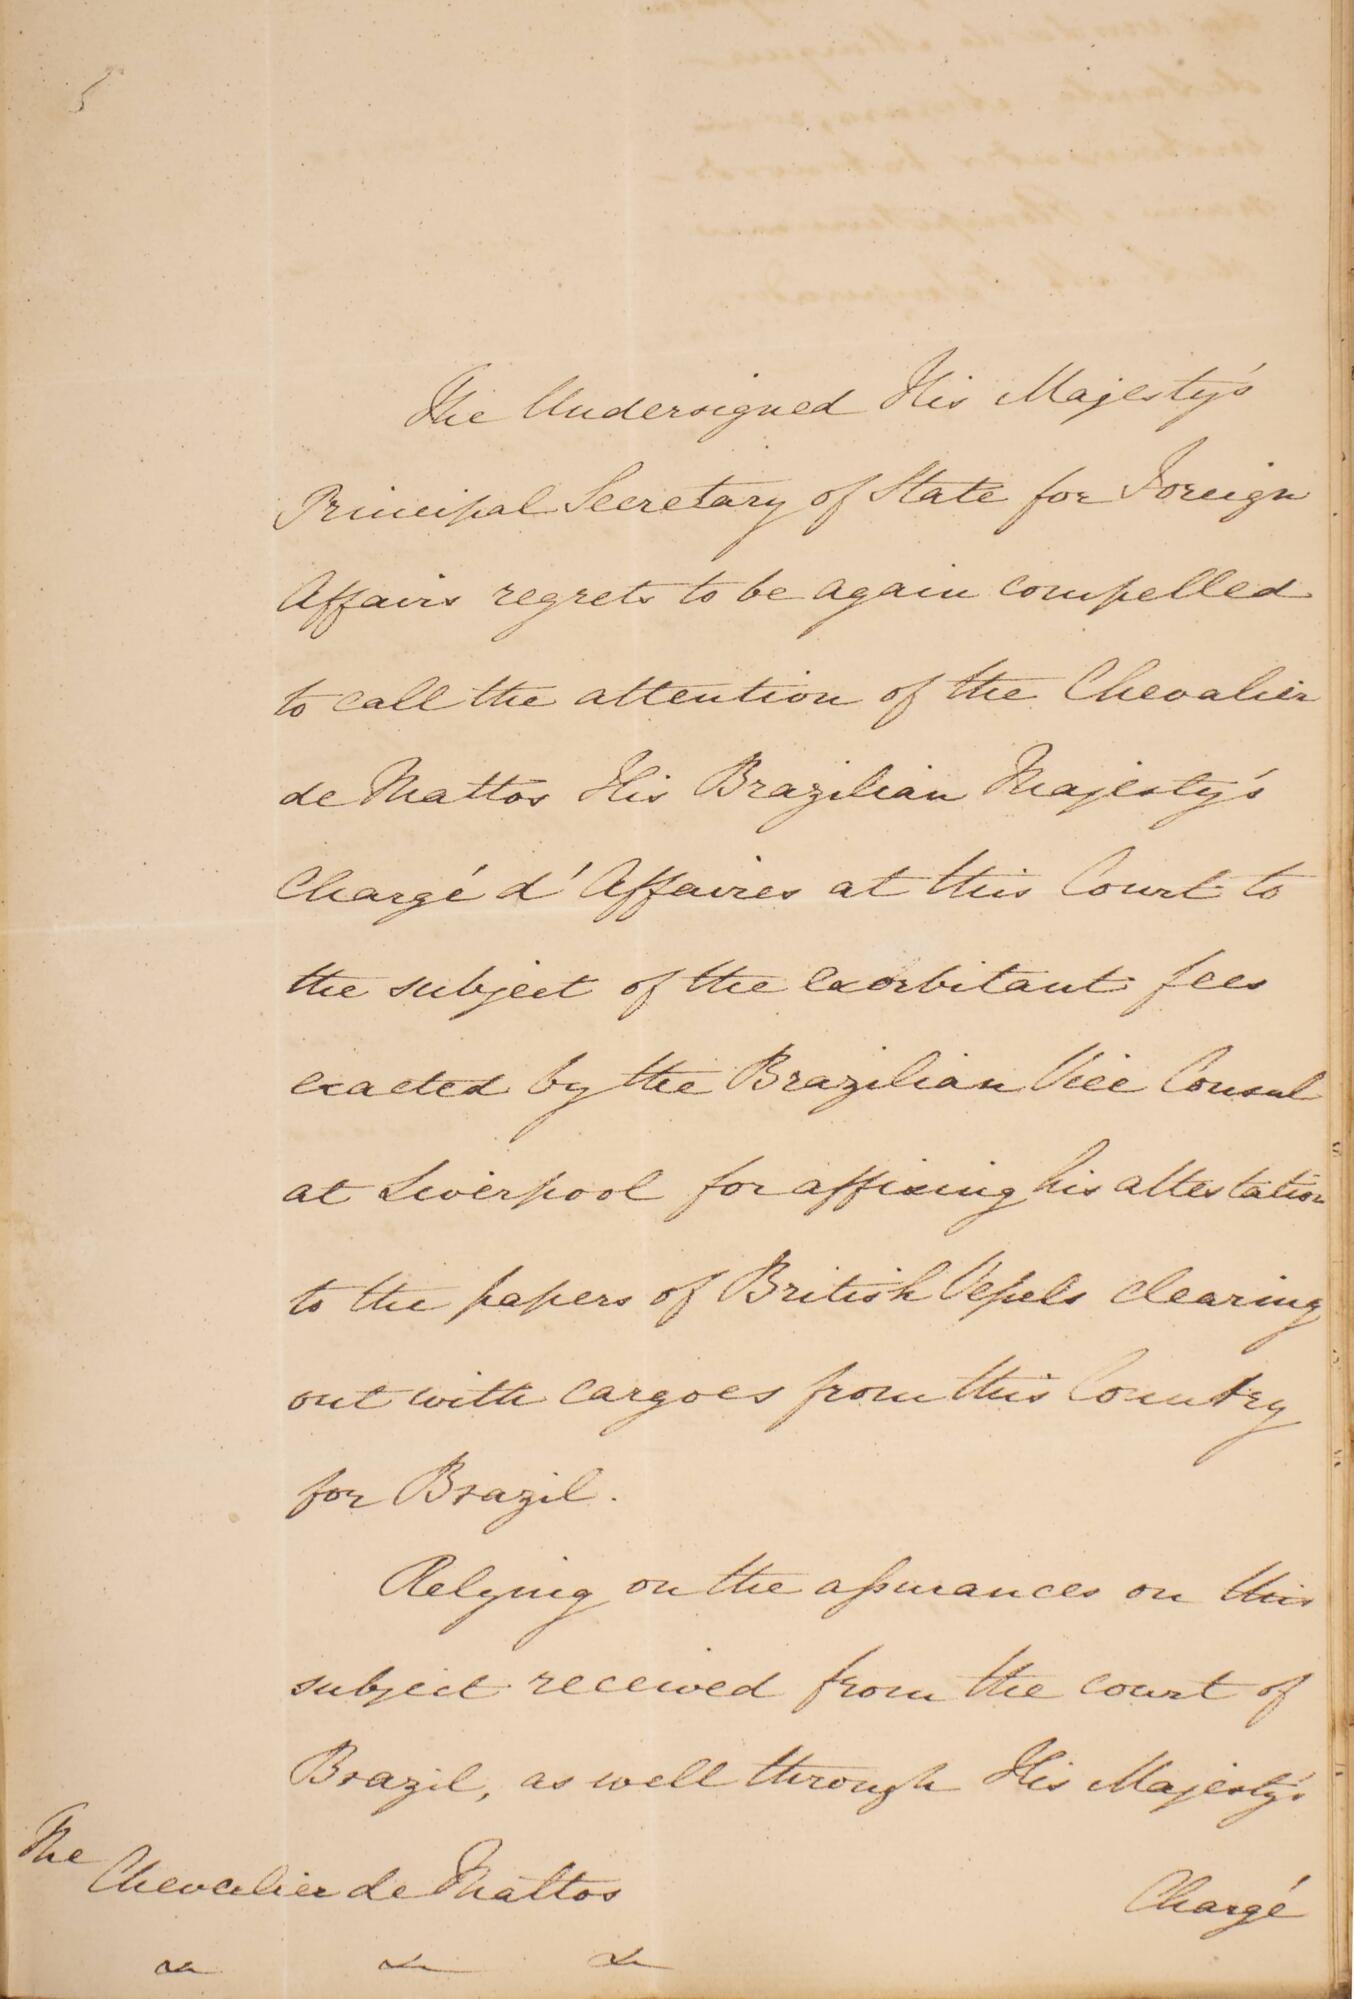 5
The Undersigned His Majesty's
Principal Secretary of State for Foreign
Affairs regrets to be again compelled
to call the attention of the Chevalier
de Mattos His Brazilian Majesty's
Chargé d'Affaires at this Court to
the subject of the exorbitant fees
exacted by the Brazilian Vice Consul
at Liverpool for affixing his attestation
to the papers of British Vessels clearing
out with cargoes from this Country
for Brazil.
Relying on the assurances on this
subject received from the court of
Brazil, as well through His Majesty's
Chargé
The
Chevalier de Mattos